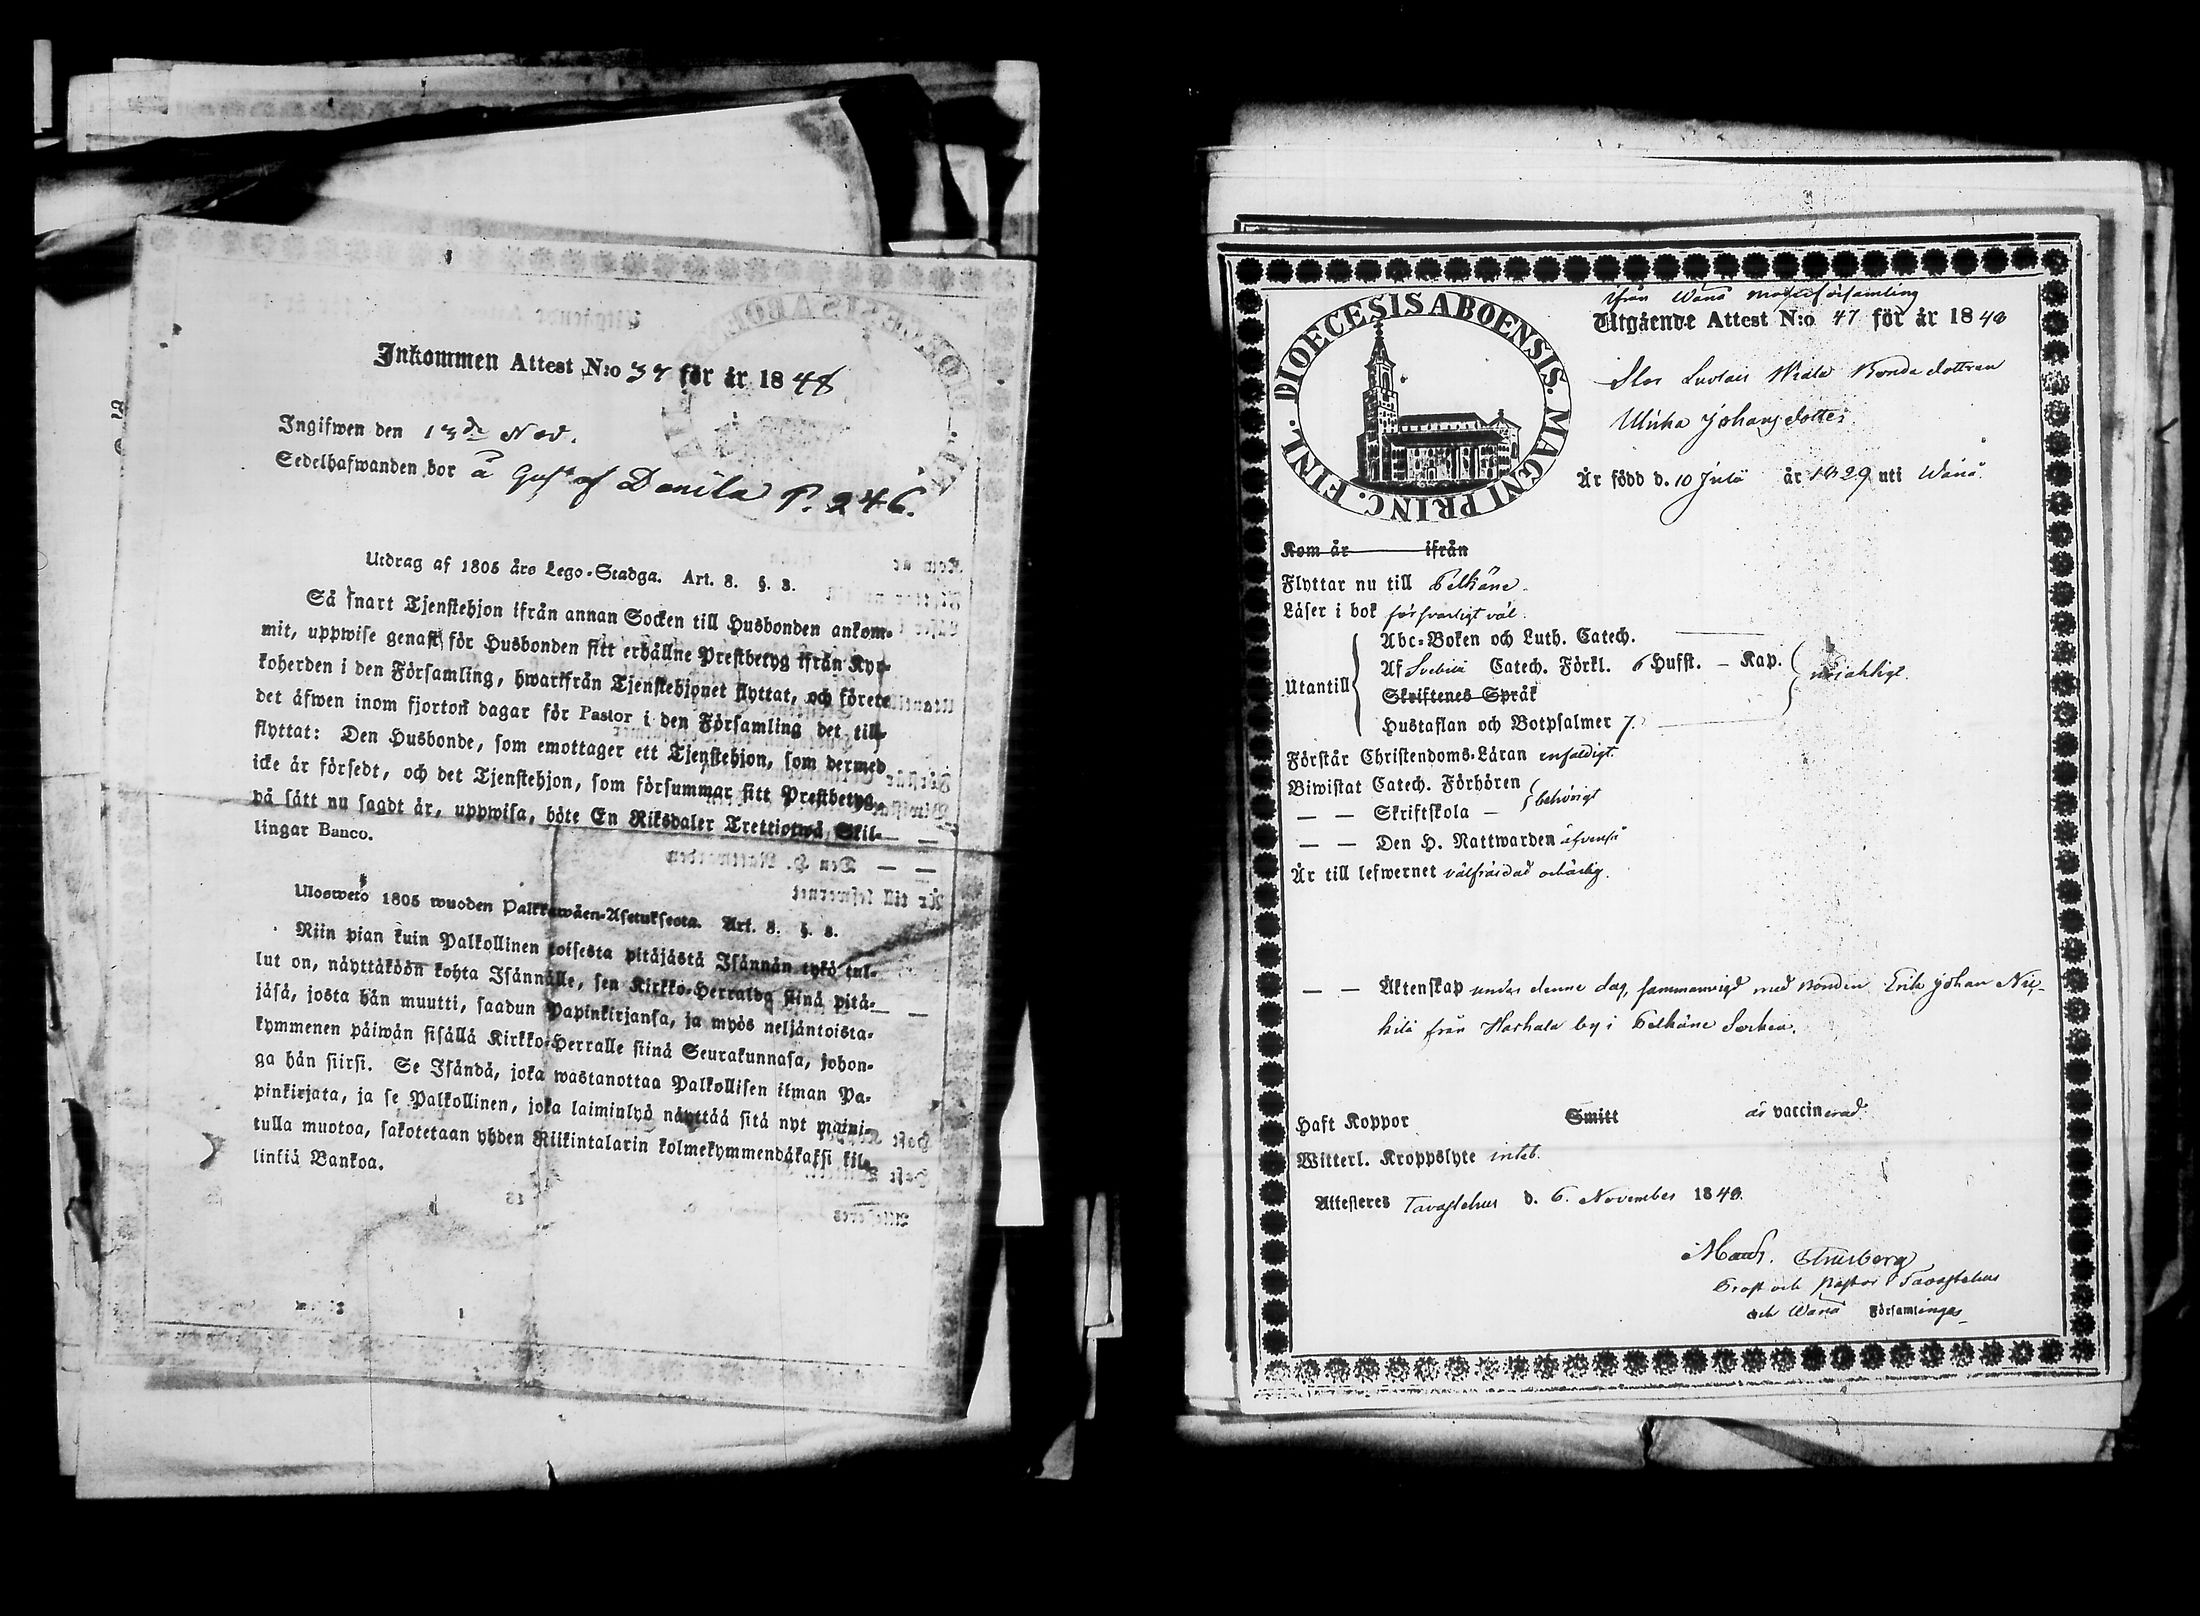 Inkommen Attest N:o 37 för år 1848
Ingifwen den 13de Nov.
Sedelhafwanden bor å Gust. af Danila P. 246.
Utdrag af 1805 års Lego-Stadga. Art. 8. §. 8.
Så snart Tjenstehjon ifrån annan Socken till Husbonden ankom-
mit, uppwise genast för Husbonden sitt erhållne Prestbetyg ifrån Kyr-
koherden i den Församling, hwarifrån Tjenstehjonet flyttat, och förete
det äfwen inom fjorton dagar för Pastor i den Församling det till-
flyttat: Den Husbonde, som emottager ett Tjenstehjon, som dermed
icke är försedt, och det Tjenstehjon, som försummar sitt Prestbetyg,
på sätt nu sagdt är, uppwisa, böte En Riksdaler Trettiotwå Skil-
lingar Banco.
Ulosweto 1805 wuoden Palkkawäen-Asetuksesta. Art. 8. §. 8.
Niin pian kuin Palkollinen toisesta pitäjästä Isännän tykö tul-
lut on, näyttäköön kohta Isännälle, sen Kirkko-Herralda siinä pitä-
jäsä, josta hän muutti, saadun Papinkirjansa, ja myös neljäntoista-
kymmenen päiwän sisällä Kirkko-Herralle siinä Seurakunnasa, johon-
ga hän siirsi. Se Isändä, joka wastanottaa Palkollisen ilman Pa-
pinkirjata, ja se Palkollinen, joka laiminlyö näyttää sitä nyt maini-
tulla muotoa, sakotetaan yhden Riikintalarin kolmekymmendäkaksi kil-
linkiä Bankoa.
ifrån Wånå moderförsamling
Utgående Attest N:o 47 för år 1848
DIOECESIS ABOENSIS. MAGNI PRINC. FINL.
Bondedottren
Ulrika Johansdotter
Är född d. 10 Julii år 1829 uti Wånå
Kom år ifrån
Flyttar nu till Pelkäne
Läser i bok försvarligt väl
Abc-Boken och Luth. Catech.
Utantill Af Svebilii Catech. Förkl. 6 Hufst. – Kap.
Skriftenes Språk
Hustaflan och Botpsalmer 7.
Förstår Christendoms-Läran enfaldigt.
Biwistat Catech. Förhören behörigt
— — Skriftskola –
— — Den H. Nattwarden äfvenså
Är till lefwernet välfräjdad och ärlig.
— — Äktenskap under denne dag, sammanvigd med Bonden Erik Johan
från Harhala by i Pelkäne Socken.
Haft Koppor Smitt är vaccinerad
Witterl. Kroppslyte intet
Attesteres Tavastehus d. 6. November 1848.
Prost och Pastor i Tavastehus
och Wånå Församlingar